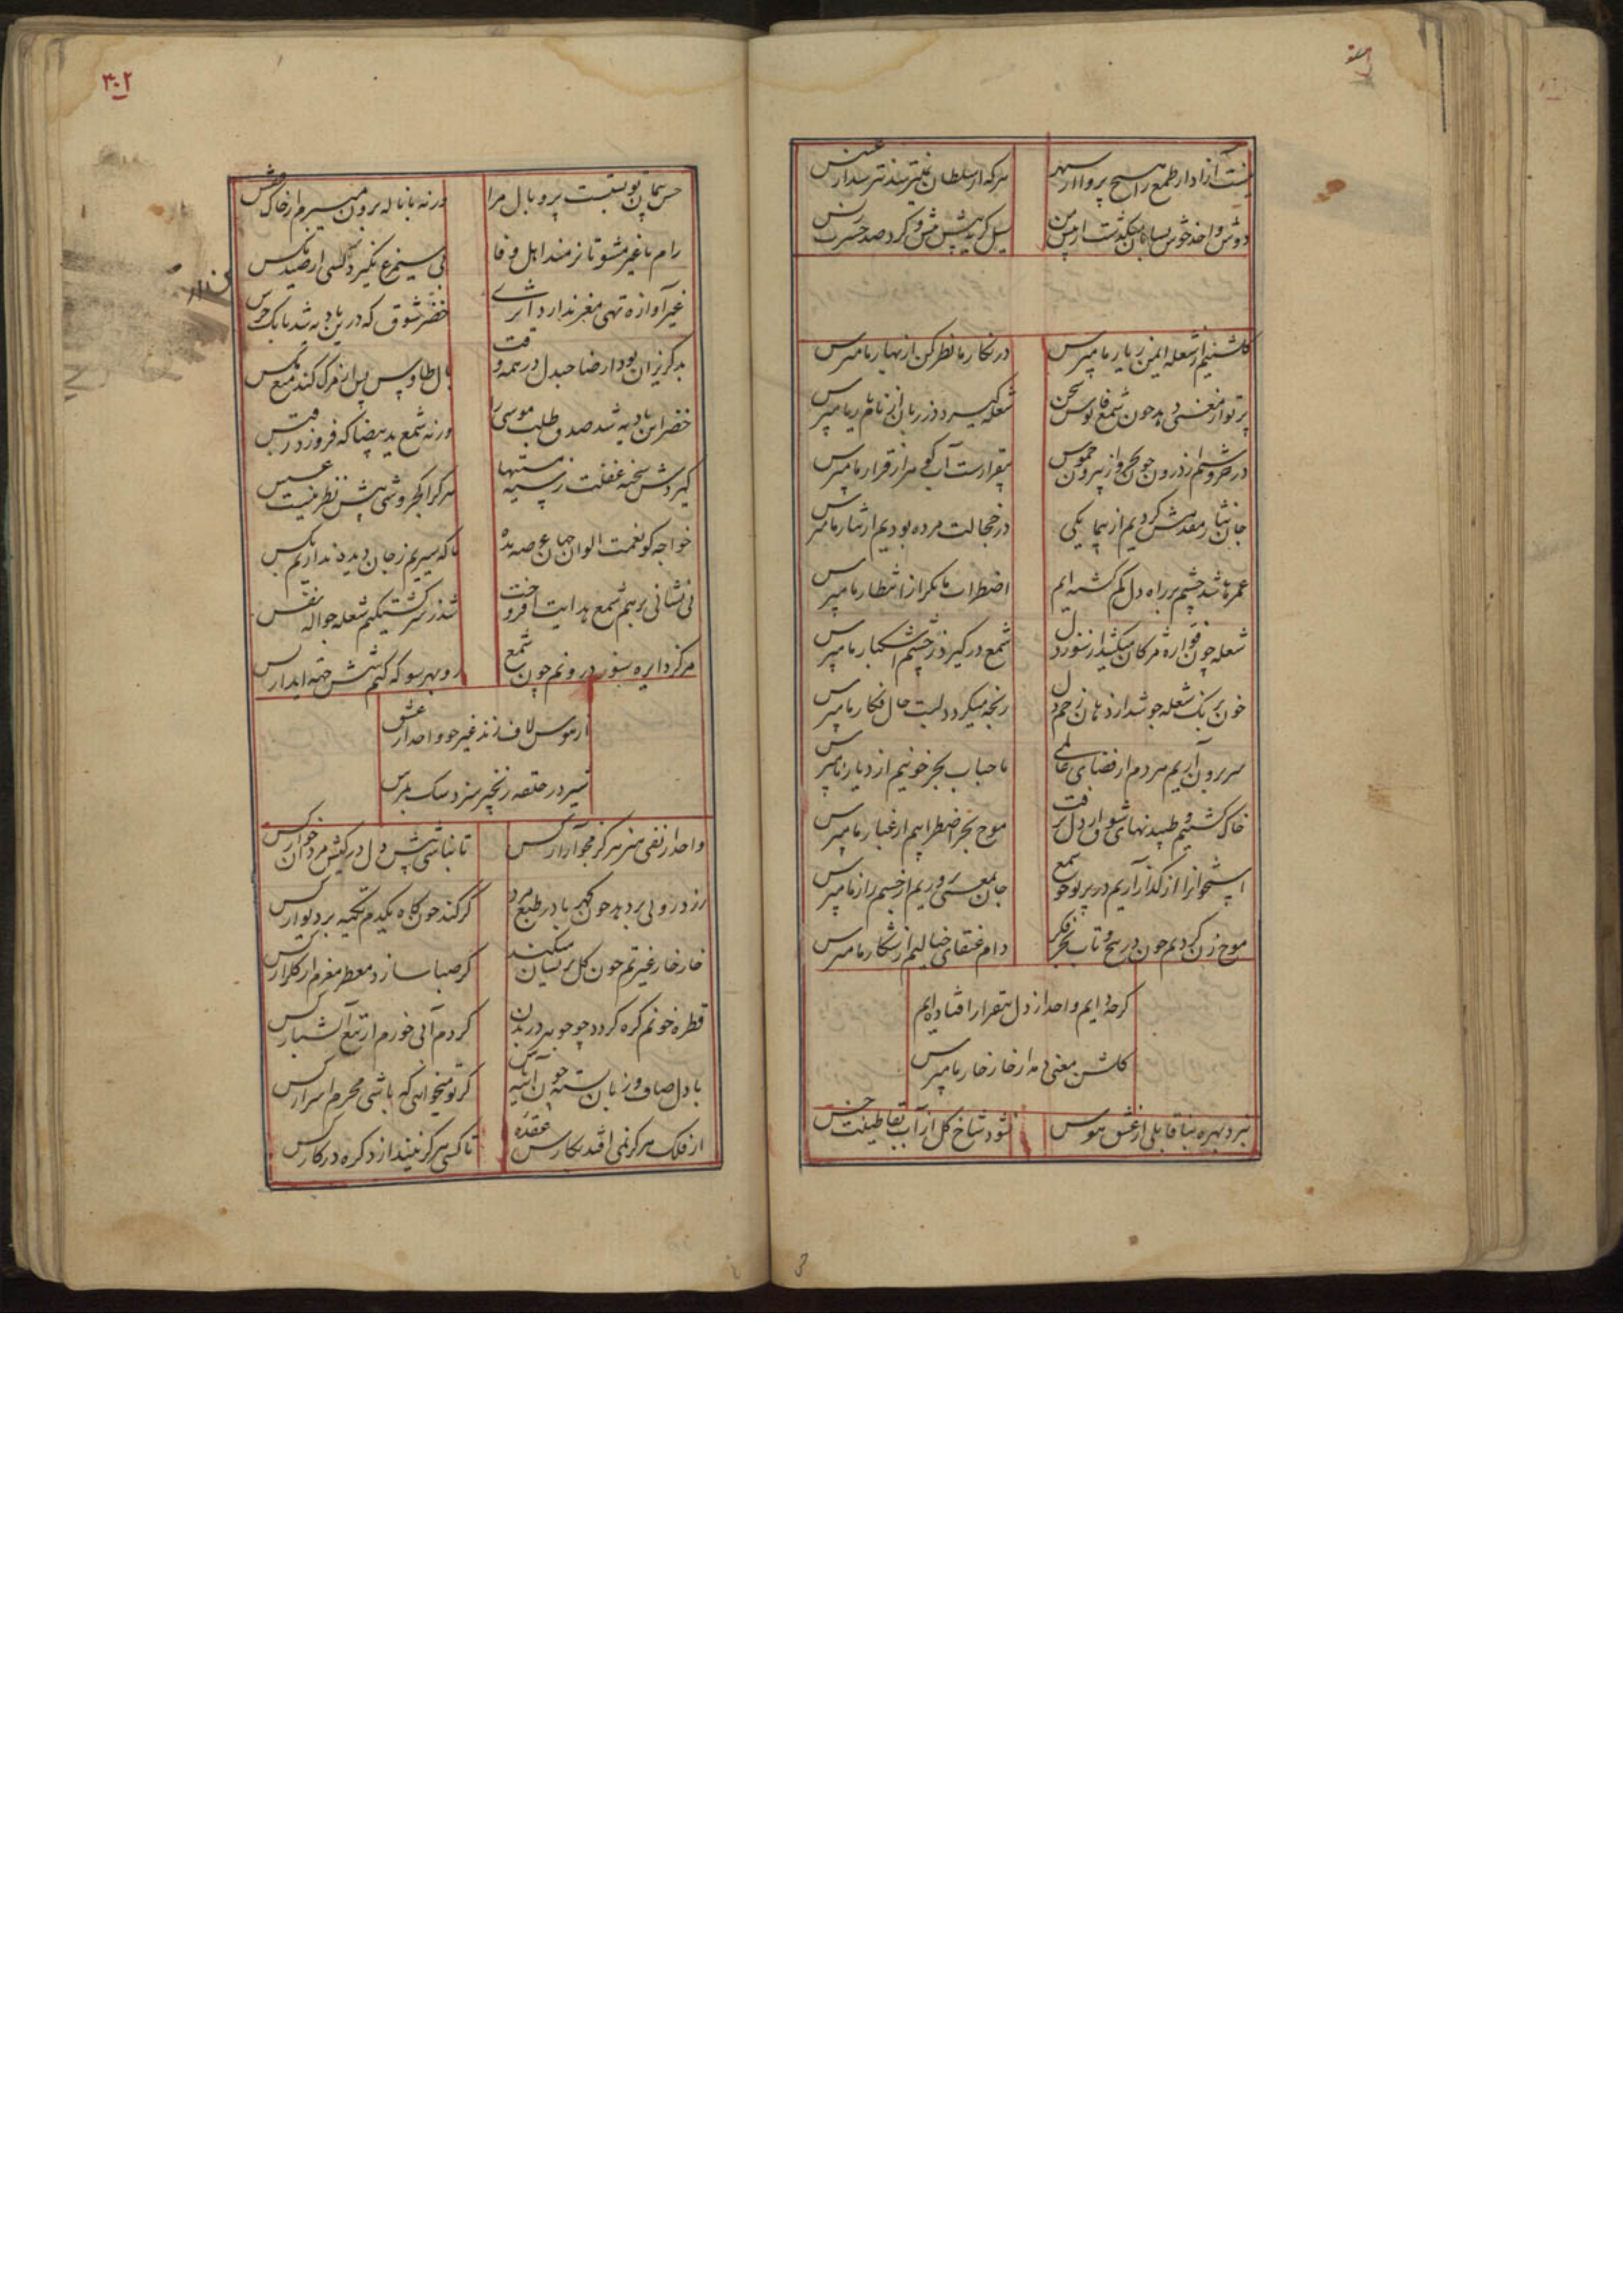 نیست آزاد از طمع را هیچ پروا از سپهر
هرکه از سلطان نمیترسد نترسد از عسس
دوش واحد خوش بسامان میگذشت از پیش من
سیل گریه پیش پیش و گرد صد حسرت ز پس
گلشنیم از شعله ایمن ز یار ما مپرس
در نگار ما نظر کن از بهار ما مپرس
پرتو از معنی دهد چون شمع فانوس سخن
شعله گیرد در زبان از نام یار ما مپرس
در خروشیم از درون چون بحر و از بیرون خموش
بیقرارست آب گوهر از قرار ما مپرس
جان نثار مقدمش کردیم از بیمایگی
در خجالت مرده بودیم از نثار ما مپرس
عمرها شد چشم بر راه دل گم گشته ایم
اضطراب ما نگر از انتظار ما مپرس
شعله چون فواره مژگان میکشد از سوز دل
شمع در گیرد ز چشم اشکبار ما مپرس
خون برنگ شعله جوشد از دهان زخم دل
رنجه میگردد لبت حال فگار ما مپرس
سر برون آریم هر دم از فضای عالمی
ما حباب بحر خونیم از دیار ما مپرس
خاک گشتیم و طپیدنهای شوق از دل نرفت
موج بحر اضطرابیم از غبار ما مپرس
استخوانرا از گداز آریم در پرتو چو شمع
جان معنی پروریم از جسم زار ما مپرس
موج زن گردیم چون در پیچ و تاب بحر فکر
دام عنقای خیالیم از شکار ما مپرس
گرچه ایم واحد از دل بیقرار افتاده ایم
گلشن معنی دمد از خارخار ما مپرس
نبرد بهره بناقابلی از عشق هوس
نشود شاخ گل از آب بقا طینت خس
۴۰۲
حسن پیمان تو بست پر و بال مرا
ورنه با ناله برون میبرم از خاک قفس
رام با غیر مشو تا نرمند اهل وفا
بی سیمرغ نگیرد کسی از صید مگس
غیر آوازه تهی مغز ندارد اثری
خضر شوق که درین بادیه شد بانگ جرس
بدگریزان بود ارضا حبدل در همه وقت
بال طاوس پس از مرگ کند منع مگس
خضر این بادیه شد صدق طلب موسی را
ورنه شمع ید بیضا که فروزد ز قبس
گیردش شحنه غفلت ز سیه مستیها
هرکرا کجروشی پیش نظر نیست عسس
خواجه گو نعمت الوان جهان عرضه مده
ما که سیریم ز جان دیده نداریم بکس
بی نشانی برهم شمع هدایت افروخت
شد ز سرگشتگیم شعله جواله نفس
مرکز دایره سوز درونم چون شمع
رو بهر سو که کنم آتش
از هوس لاف زند غیر چو واحد از عشق
شیر در حلقه زنجیر سزد سگ بمرس
واحد از نفی هنر هرگز مجو آزار کس
تا نباشی پیش دل در کیش مردان خوار کس
زردرویی بر دهد چون کهربا در طبع مرد
گر کند چون کاه یکدم تکیه بر دیوار کس
خارخار غیرتم چون گل پریشان میکند
گر صبا سازد معطر مغزم از گلزار کس
قطره خونم گره گردد چو جوهر در بدن
گر دم آبی خورم از تیغ آتشبار کس
با دل صاف و زبان بسته چون آئینه
گر تو میخواهی که باشی محرم اسرار کس
از فلک هرگز نمی افتد بکارش عقده
تا کسی هرگز نیندازد گره در کار کس